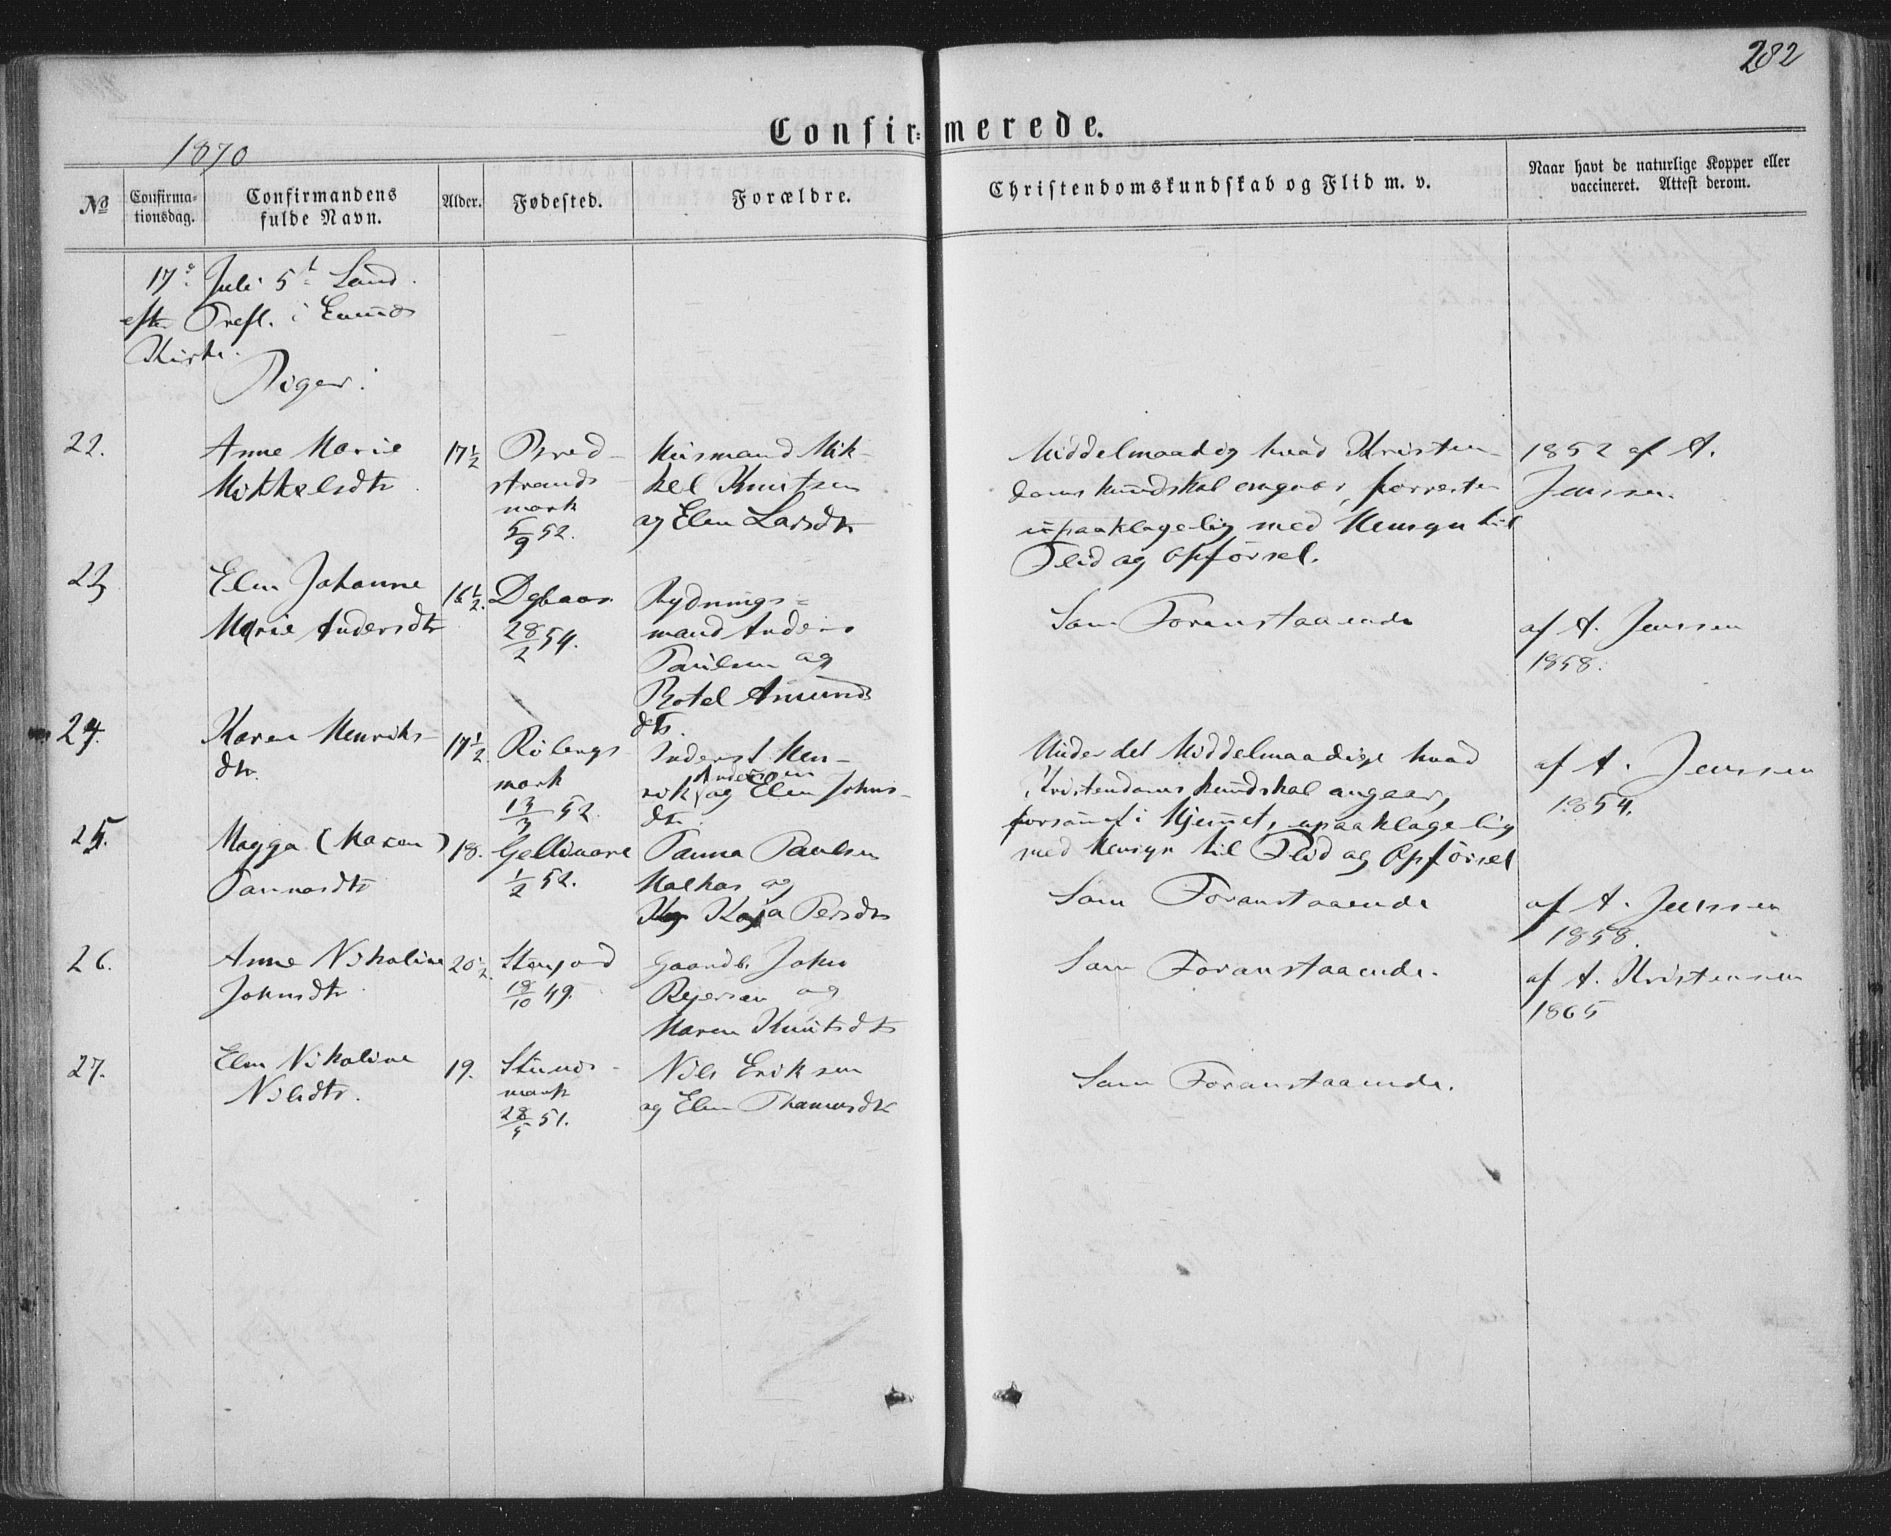 282
Confir- merede.
1870
No
Confirma-
tionsdag.
Confirmandens
fulde Navn.
Alder.
Fødested.
Forældre.
Christendomskundskab og Flid m. v.
Naar havt de naturlige Kopper eller
vaccineret. Attest derom.
17de Juli 5te Sønd.
efter Trefl. i
Kirke.
Piger:
22.
Anne Marie
Mikkelsdtr
17½
Bred-
strands
mark
5/9 52.
Husmand Mik-
kel Knutsen
og Elen Larsdtr
Middelmaadig hvad Kristen-
domskundskab angaar, forresten
upaaklagelig med Hensyn til
Flid og Opførsel.
1852 af A.
Jenssen.
23
Elen Johanne
Marie Andersdtr
16½.
28/2 54.
Rydnings-
mand Anders
Paulsen og
Amunds
dtr.
Som Foranstaaende
af A. Jenssen
1858.
24.
Karen Henriks-
dtr.
17½
Røbergs
mark
13/3 52.
Inderst Hen-
rik Andersen og Elen Johns-
dtr.
Under det Middelmaadige hvad
Kristendomskundskab angaar,
forsømt i Hjemmet, upaaklagelig
med Hensyn til Flid og Opførsel
af A. Jenssen
1854.
25.
Magga (Maren)
18.
Gellivare
1/2 52.
Paulsen
og
Kaja Persdtr
Som Foranstaaende
af A. Jenssen
1858.
26.
Anne Nikoline
Johnsdtr
20½.
18/10 49.
Gaardb. John
Rejersen og
Maren Knutsdtr
Som Foranstaaende.
af A. Kristensen
1865
27.
Elen Nikoline
Nilsdtr.
19.
mark
28/5 51.
Nils Eriksen
og Elen Thomasdtr
Som Foranstaaende.